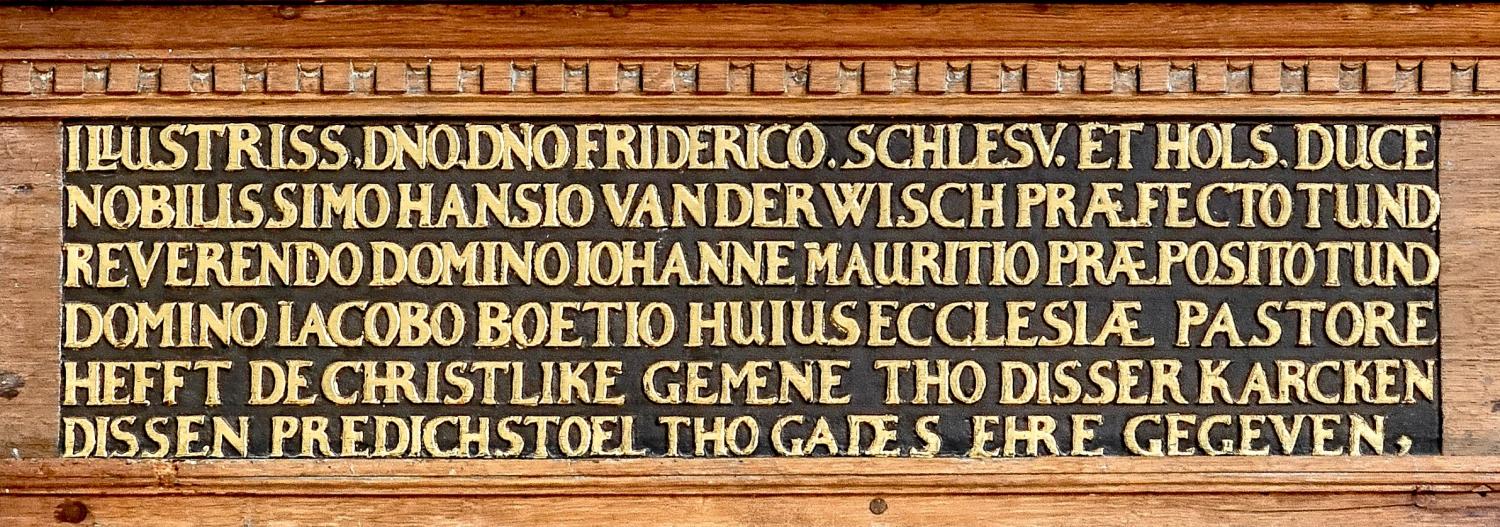 ILLUSTRISS. DNO. DNO FRIDERICO. SCHLESV. ET HOLS. DUCE
NOBILISSIMO HANSIO VAN DER WISCH PRÆFECTO TUND
REVERENDO DOMINO IOHANNE MAURITIO PRÆPOSITO TUND
DOMINO IACOBO BOETIO HUIUS ECCLESIÆ PASTORE
HEFFT DE CHRISTLIKE GEMENE THO DISSER KARCKEN
DISSEN PREDICHSTOEL THO GADES EHRE GEGEVEN,